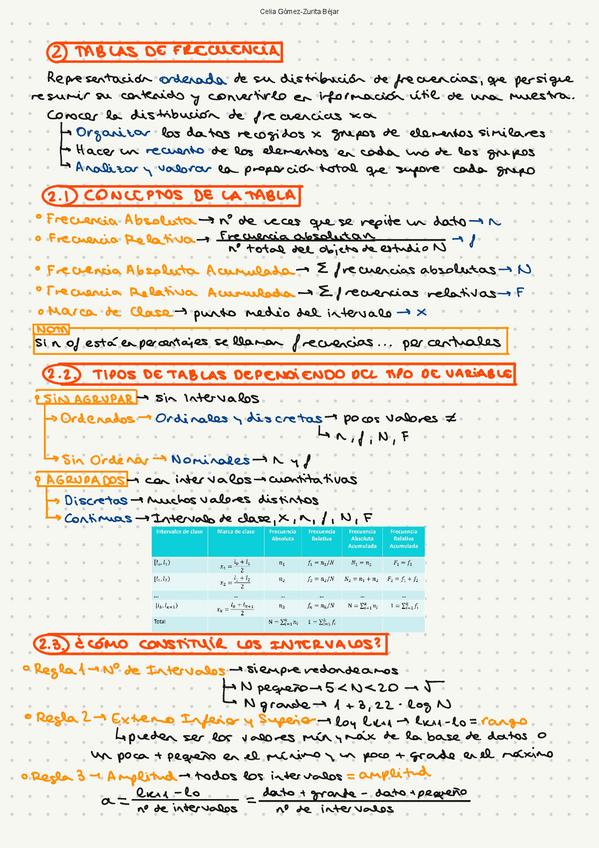 Celia Gómez-Zurita Béjar
2) TABLAS DE FRECUENCIA
Representación ordenada de su distribución de frecuencias, que persigue
resumir su contenido y convertirlo en información útil de una muestra.
Conocer la distribución de frecuencias xa
↳ Organizar los datos recogidos x grupos de elementos similares
↳ Hacer un recuento de los elementos en cada uno de los grupos
↳ Analizar y valorar la proporción total que supone cada grupo
2.1) CONCEPTOS DE LA TABLA
• Frecuencia Absoluta → nº de veces que se repite un dato → n
• Frecuencia Relativa → Frecuencia absoluta n / nº total del objeto de estudio N → f
• Frecuencia Absoluta Acumulada → Σ frecuencias absolutas → N
• Frecuencia Relativa Acumulada → Σ frecuencias relativas → F
• Marca de Clase → punto medio del intervalo → x
NOTA
Si n o f está en porcentajes se llaman frecuencias... porcentuales
2.2.) TIPOS DE TABLAS DEPENDIENDO DEL TIPO DE VARIABLE
• SIN AGRUPAR → sin intervalos
→ Ordenados → Ordinales y discretas → pocos valores ≠
↳ n, f, N, F
→ Sin Ordenar → Nominales → n y f
• AGRUPADOS → con intervalos → cuantitativas
→ Discretas → muchos valores distintos
→ Continuas → Intervalo de clase, x, n, f, N, F
Intervalo de clase Marca de clase Frecuencia Absoluta Frecuencia Relativa Frecuencia Absoluta Acumulada Frecuencia Relativa Acumulada
x₁ = (l₀ + l₁)/2 n₁ f₁ = n₁/N N₁ = n₁ F₁ = f₁
x₂ = (l₁ + l₂)/2 n₂ f₂ = n₂/N N₂ = n₁ + n₂ F₂ = f₁ + f₂
... ... ... ... ... ...
Total
2.3.) ¿CÓMO CONSTITUIR LOS INTERVALOS?
• Regla 1 → Nº de Intervalos → siempre redondeamos
↳ N pequeño → 5 < N < 20 → √
↳ N grande → 1 + 3,22 · log N
• Regla 2 → Extremo Inferio y Superio → l0 y lk+1 → lk+1 - l0 = rango
↳ pueden ser los valores mín y máx de la base de datos o
un poca + pequeño en el mínimo y un poco + grande en el máximo
• Regla 3 → Amplitud → todos los intervalos = amplitud
a = (lk+1 - l0) / nº de intervalos = (dato + grande - dato + pequeño) / nº de intervalos